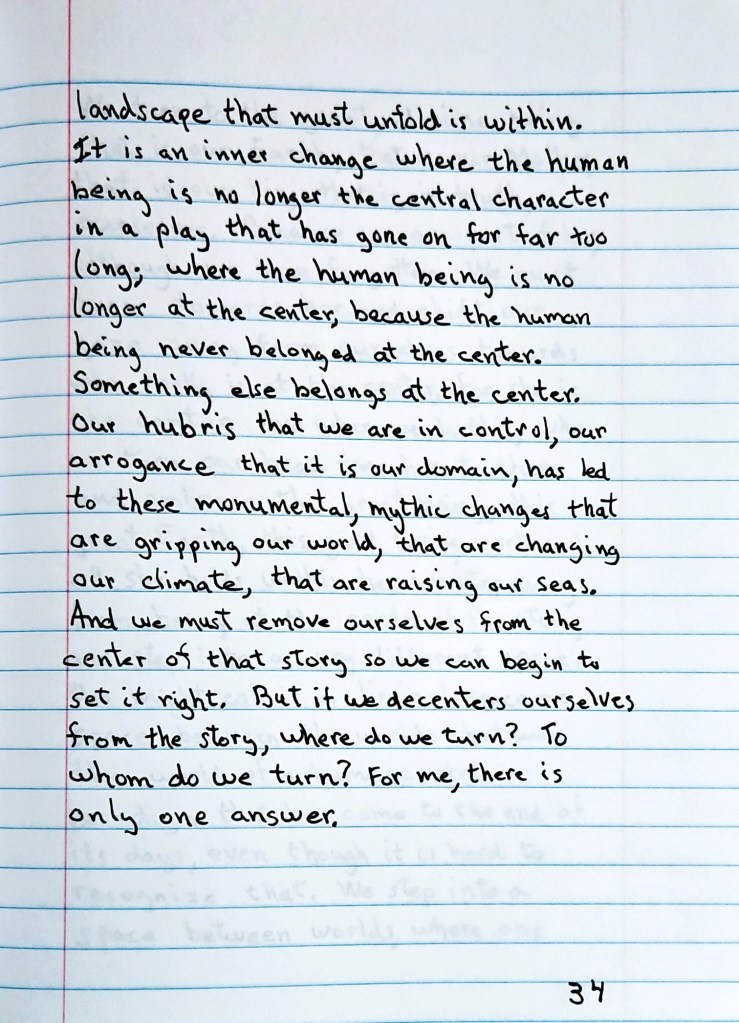 landscape that must unfold is within.
It is an inner change where the human
being is no longer the central character
in a play that has gone on for far too
long; where the human being is no
longer at the center, because the human
being never belonged at the center.
Something else belongs at the center.
Our hubris that we are in control, our
arrogance that it is our domain, has led
to these monumental, mythic changes that
are gripping our world, that are changing
our climate, that are raising our seas.
And we must remove ourselves from the
center of that story so we can begin to
set it right. But if we decenters ourselves
from the story, where do we turn? To
whom do we turn? For me, there is
only one answer.
come to the end of
its days, even though it is hard to
recognize that. We step into a
space between worlds, where one
34